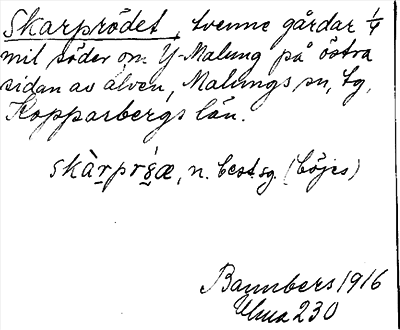 Skarprödet, tvenne gårdar 1/4
mil söder om Y-Malung på östra
sidan av älven, Malungs sn, tg,
Kopparbergs län.
skàrpr, n. best.sg. (böjes)
1916
Ulma 230